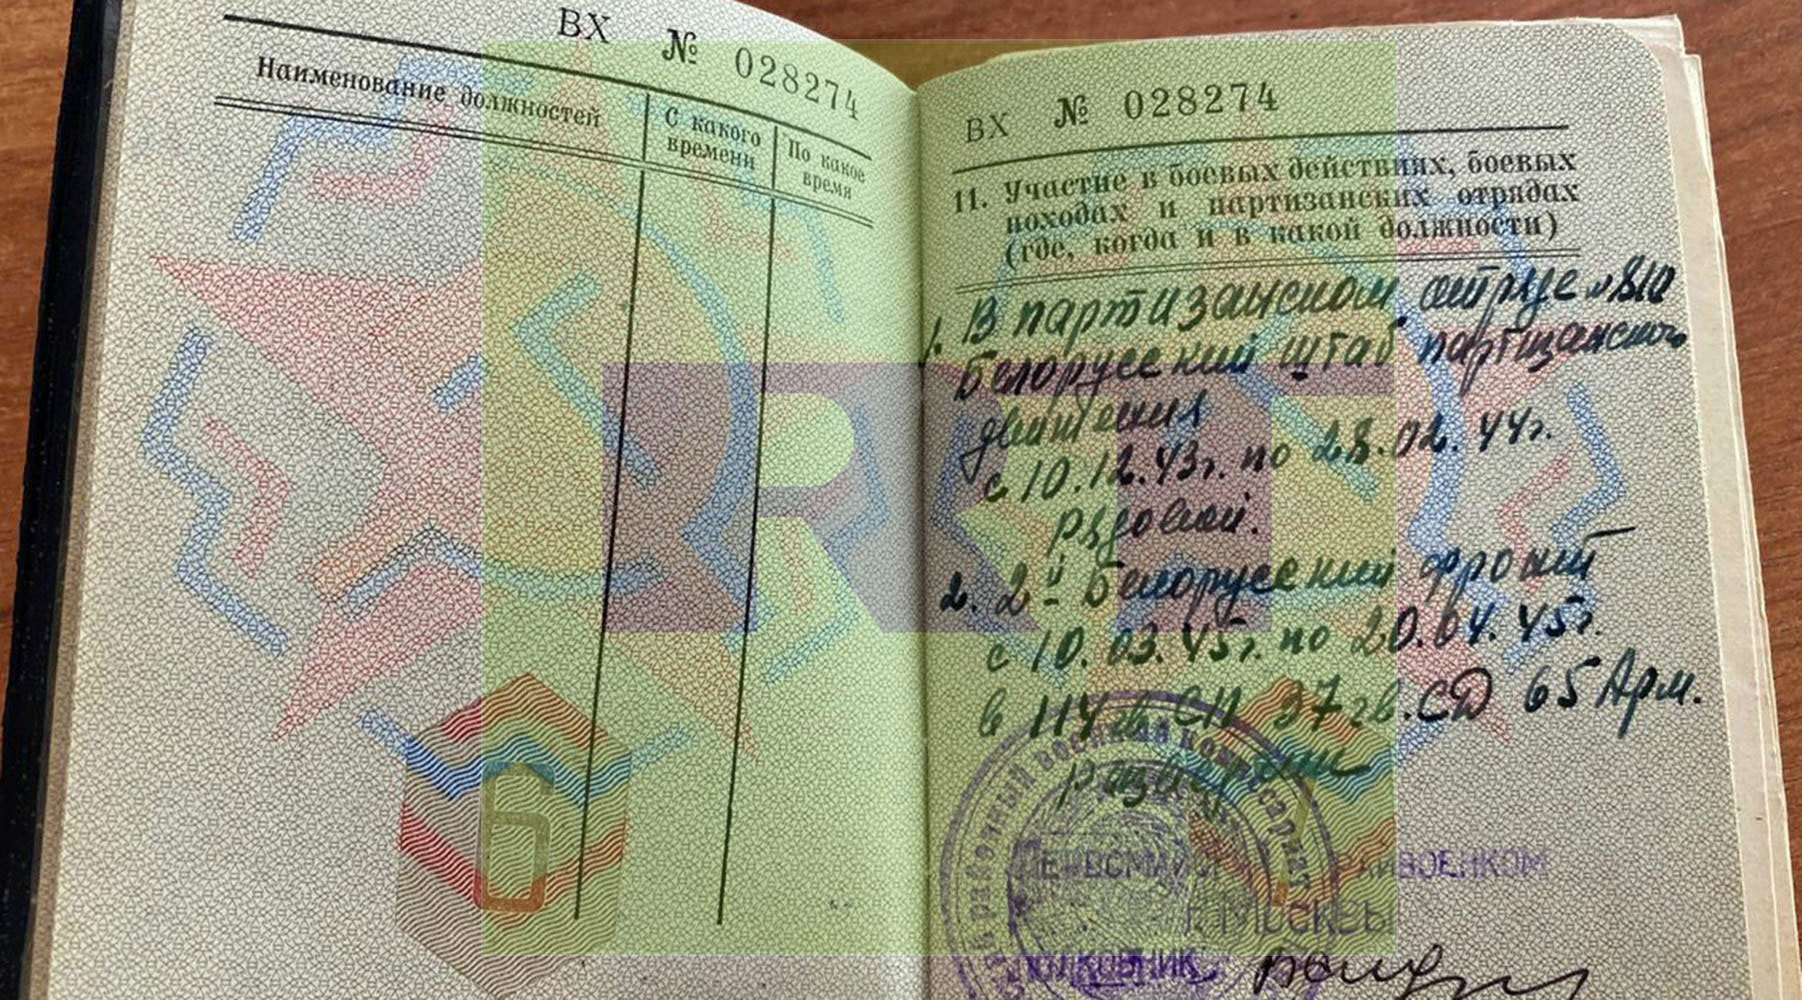 ВХ № 028274
Наименование должностей
С какого времени
По какое время
6
ВХ № 028274
11. Участие в боевых действиях, боевых
походах и партизанских отрядах
(где, когда и в какой должности)
1. В партизанском отряде №810
Белорусский штаб партизанского
движения
с 10.12.43г. по 28.02.44г.
рядовой.
2. 2й Белорусский фронт
с 10.03.45г. по 20.04.45г.
в 114 гв. СП 37 гв. СД 65 Арм.
районный военный комиссариат
РАЙВОЕНКОМ
Г. МОСКВЫ
ПОЛКОВНИК
7
RT